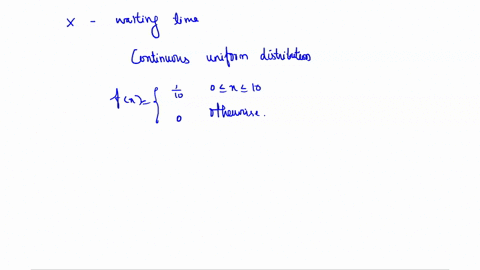 x - waiting time
Continuous uniform distribution
f(x) = { 1/10 0 ≤ x ≤ 10
0 otherwise.